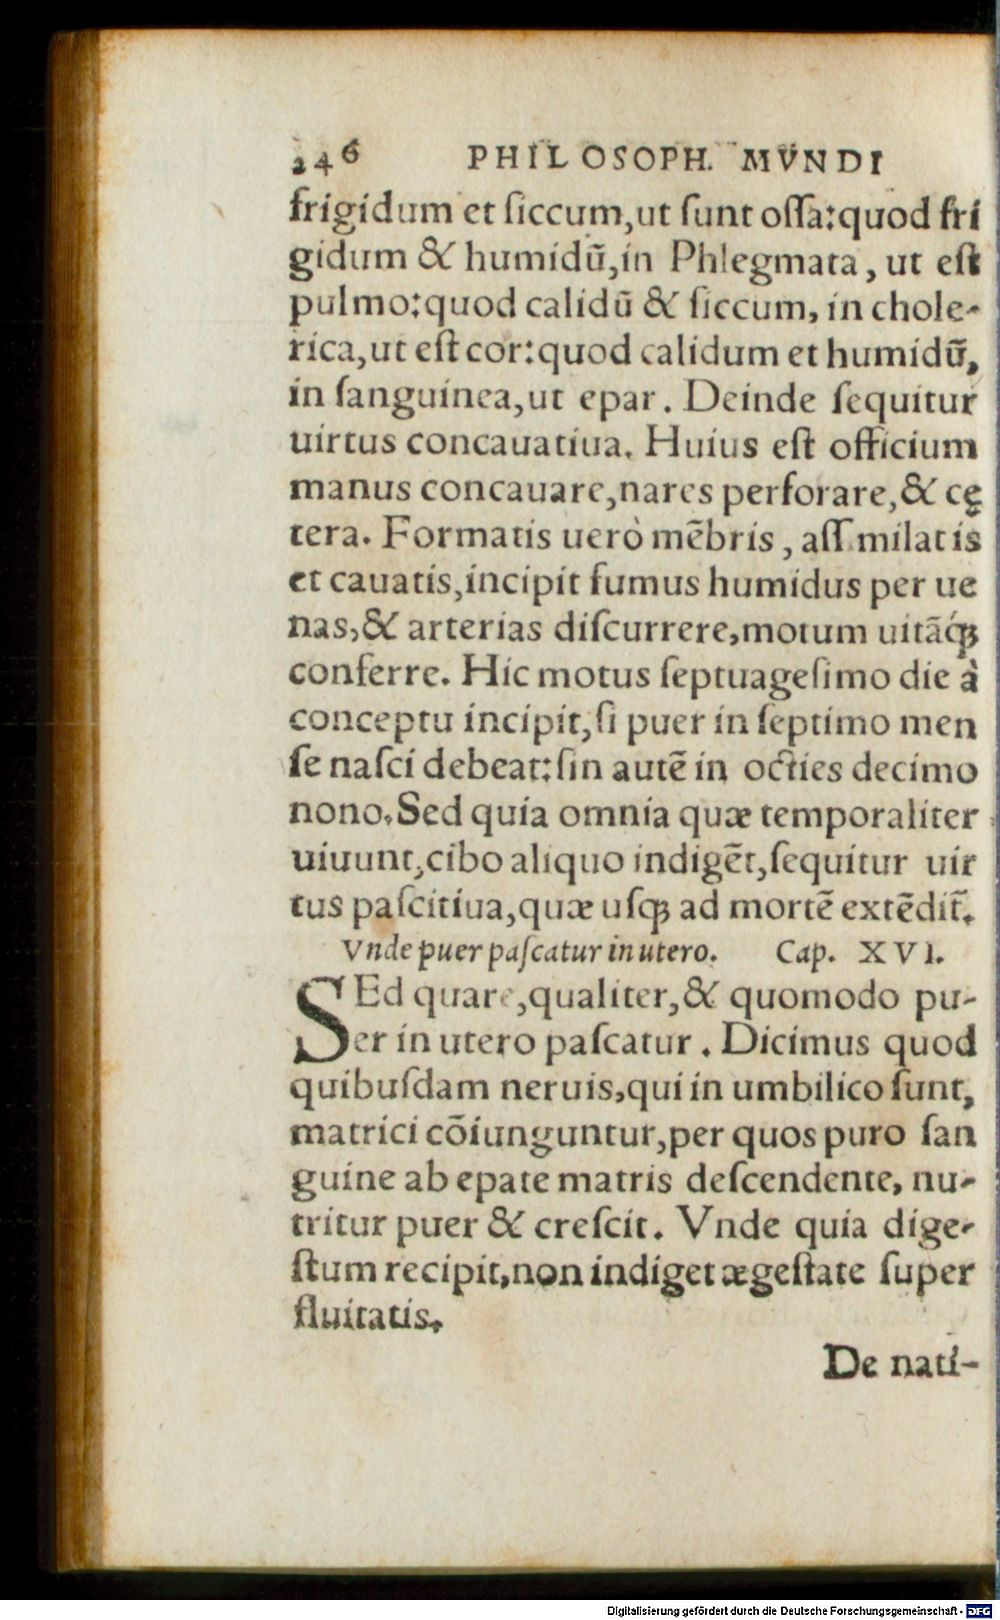 246 PHILOSOPH. MVNDI
frigidum et ſiccum, ut ſunt oſſa: quod fri
gidum & humidũ, in Phlegmata, ut eſt
pulmo: quod calidũ & ſiccum, in chole-
rica, ut eſt cor: quod calidum et humidũ,
in ſanguinea, ut epar. Deinde ſequitur
uirtus concauatiua. Huius eſt officium
manus concauare, nares perforare, & cę
tera. Formatis uerò mẽbris, aſſimilatis
et cauatis, incipit fumus humidus per ue
nas, & arterias diſcurrere, motum uitãq́ꝫ
conferre. Hic motus ſeptuageſimo die à
conceptu incipit, ſi puer in ſeptimo men
ſe naſci debeat: ſin autẽ in octies decimo
nono. Sed quia omnia quæ temporaliter
uiuunt, cibo aliquo indigẽt, ſequitur uir
tus paſcitiua, quæ uſqꝫ ad mortẽ extẽdit̃.
Vnde puer paſcatur in utero. Cap. XVI.
SEd quare, qualiter, & quomodo pu-
er in utero paſcatur. Dicimus quod
quibuſdam neruis, qui in umbilico ſunt,
matrici cõiunguntur, per quos puro ſan
guine ab epate matris deſcendente, nu-
tritur puer & creſcit. Vnde quia dige-
ſtum recipit, non indiget ægeſtate ſuper
fluitatis.
De nati-
Digitalisierung gefördert durch die Deutsche Forschungsgemeinschaft - DFG